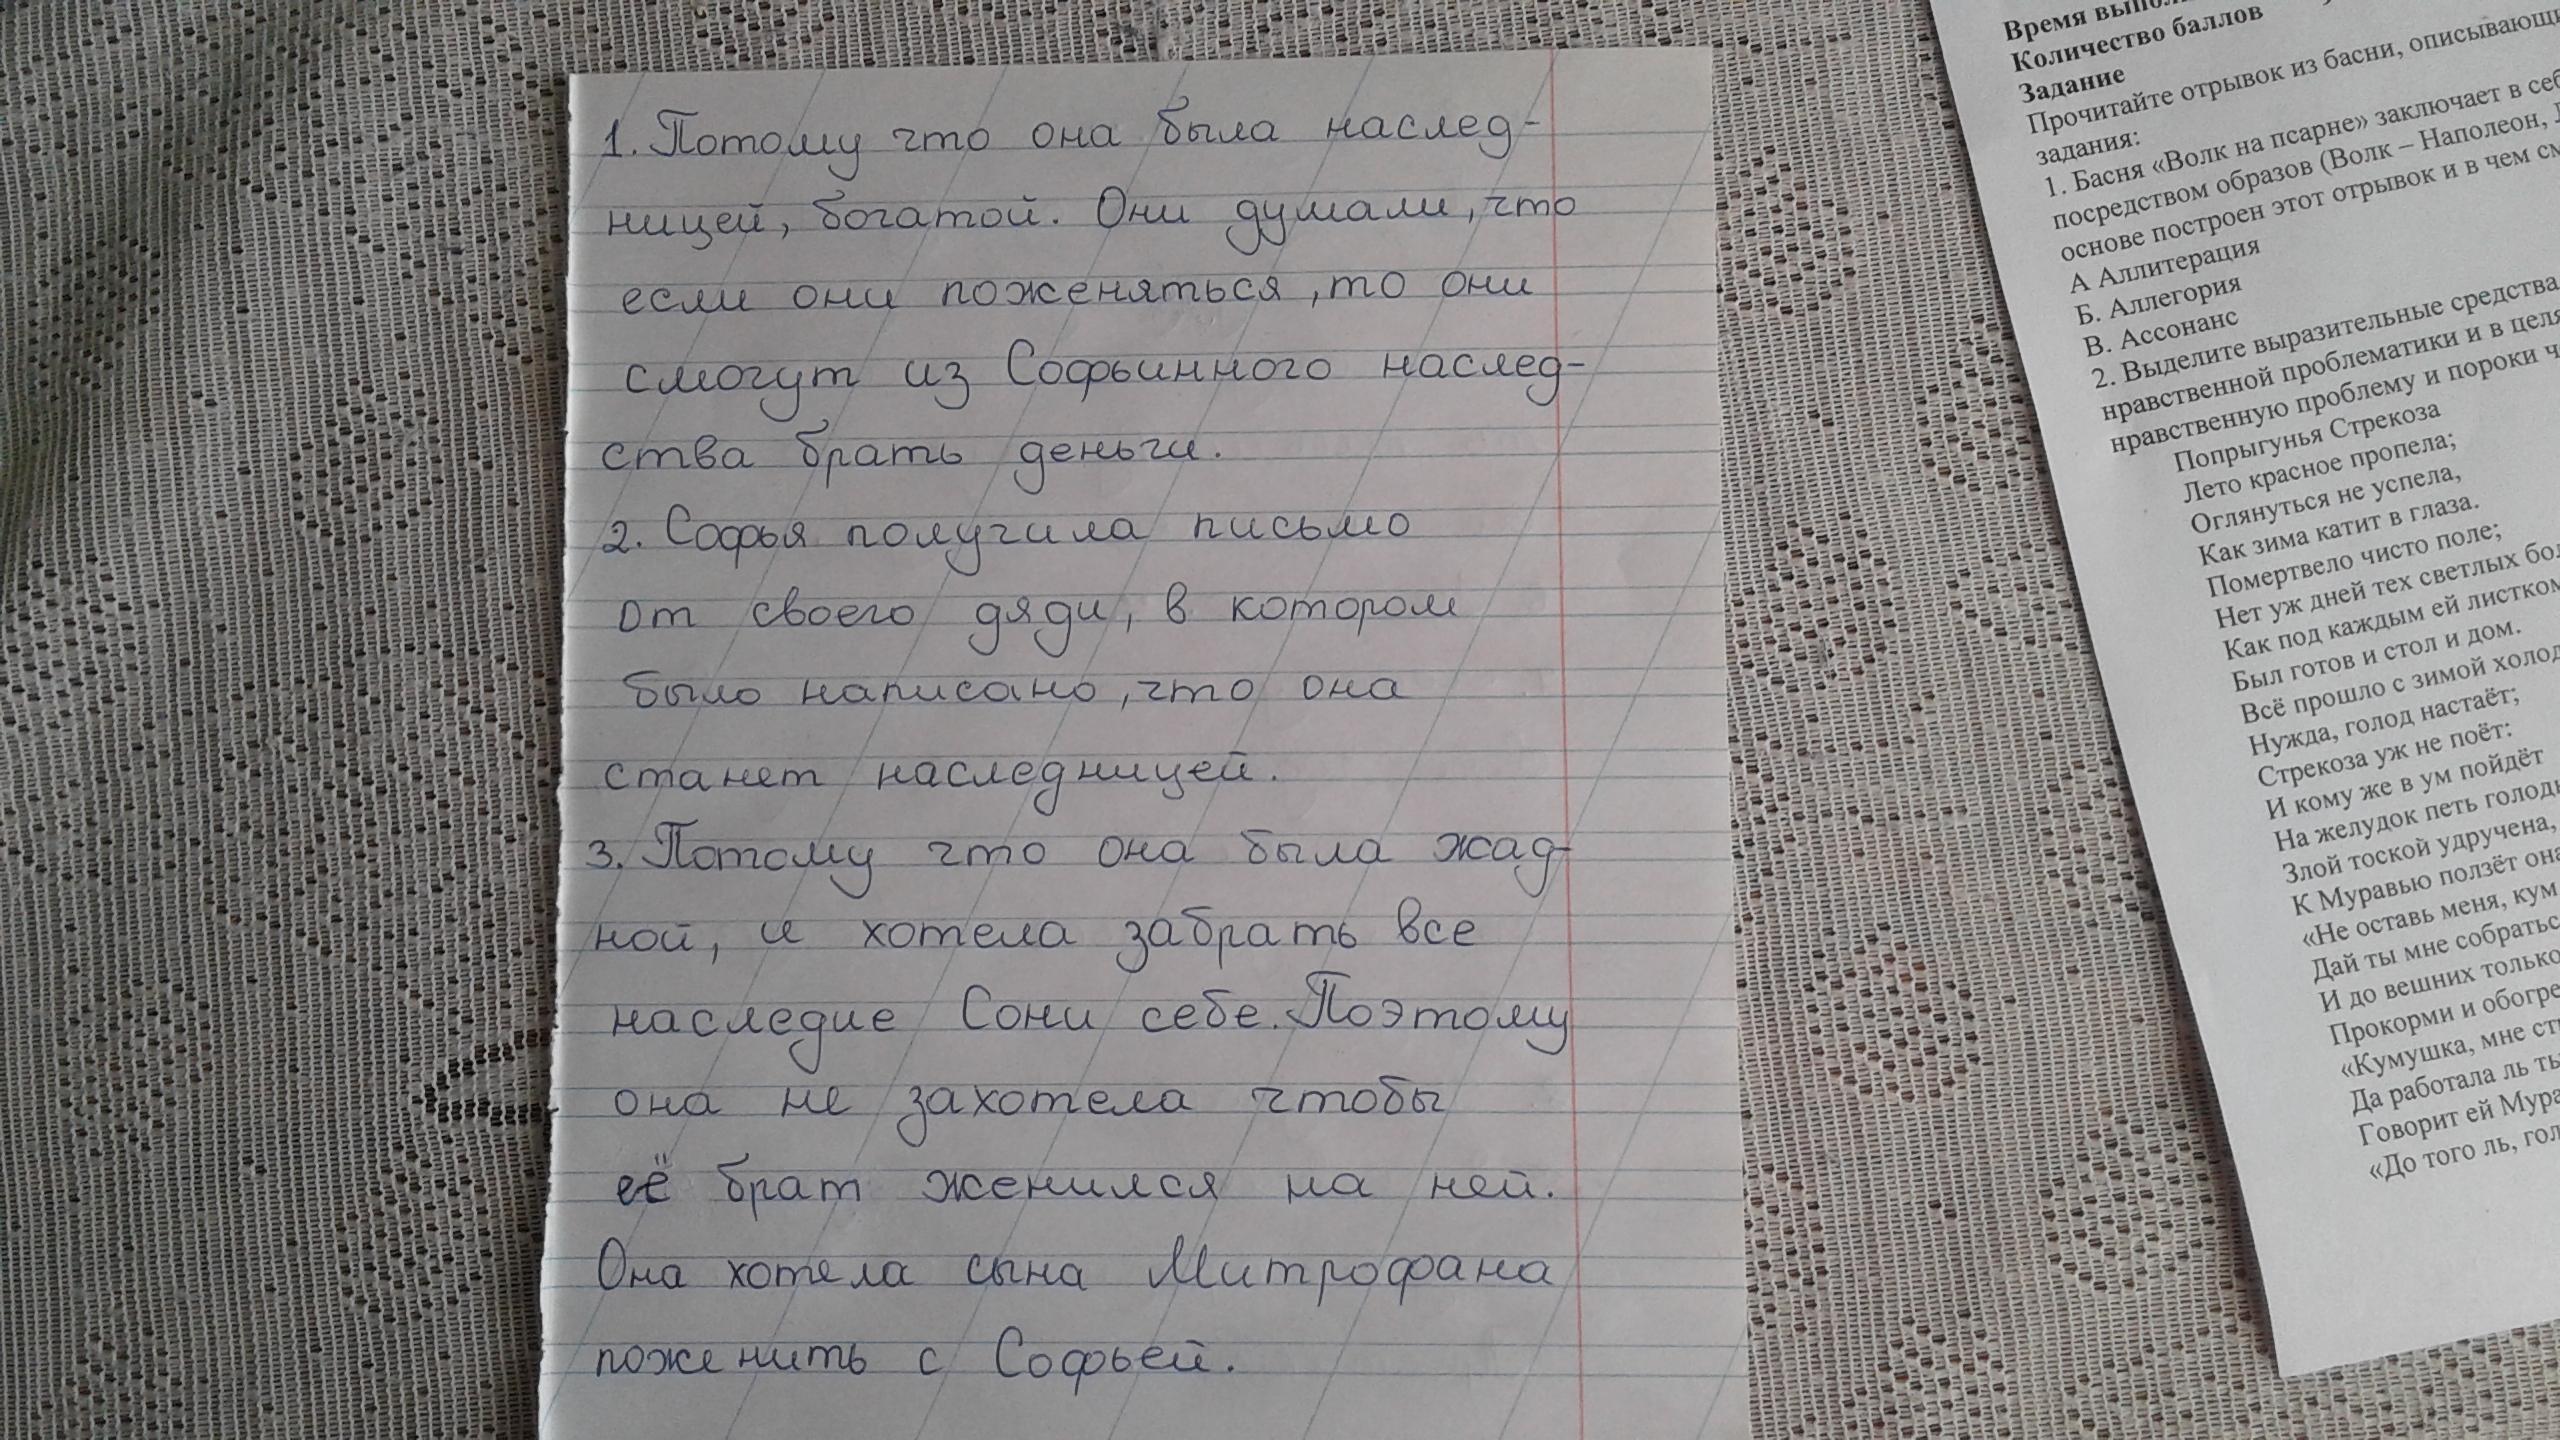 1. Потому что она была наслед-
ницей, богатой. Они думали, что
если они поженяться, то они
смогут из Софьинного наслед-
ства брать деньги.
2. Софья получила письмо
от своего дяди, в котором
было написано, что она
станет наследницей.
3. Потому что она была жад-
ной, и хотела забрать все
наследие Сони себе. Поэтому
она не захотела чтобы
её брат женился на ней.
Она хотела сына Митрофана
поженить с Софьей.
Время
Количество баллов
Задание
Прочитайте отрывок из басни,
задания:
1. Басня «Волк на псарне» заключает в
посредством образов (Волк – Наполеон,
основе построен этот отрывок и в чем
А Аллитерация
Б. Аллегория
В. Ассонанс
2. Выделите выразительные средства
нравственной проблематики и в
нравственную проблему и пороки
Попрыгунья Стрекоза
Лето красное пропела;
Оглянуться не успела,
Как зима катит в глаза.
Помертвело чисто поле;
Нет уж дней тех светлых
Как под каждым ей
Был готов и стол и дом.
Всё прошло с зимой
Нужда, голод настаёт;
Стрекоза уж не поёт:
И кому же в ум пойдёт
На желудок петь
Злой тоской удручена,
К Муравью ползёт она
«Не оставь меня, кум
Дай ты мне
И до вешних только
Прокорми и
«Кумушка, мне
Да работала ль
Говорит ей
«До того ль,